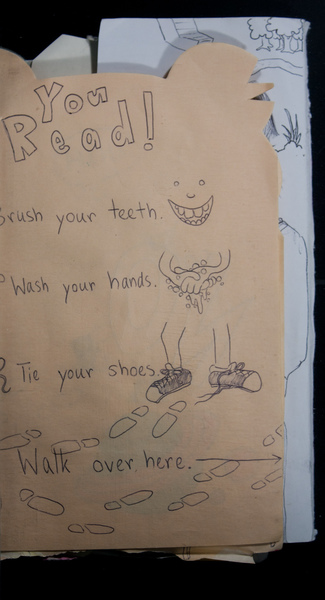 You
Read!
Brush your teeth.
Wash your hands.
Tie your shoes.
Walk over here.